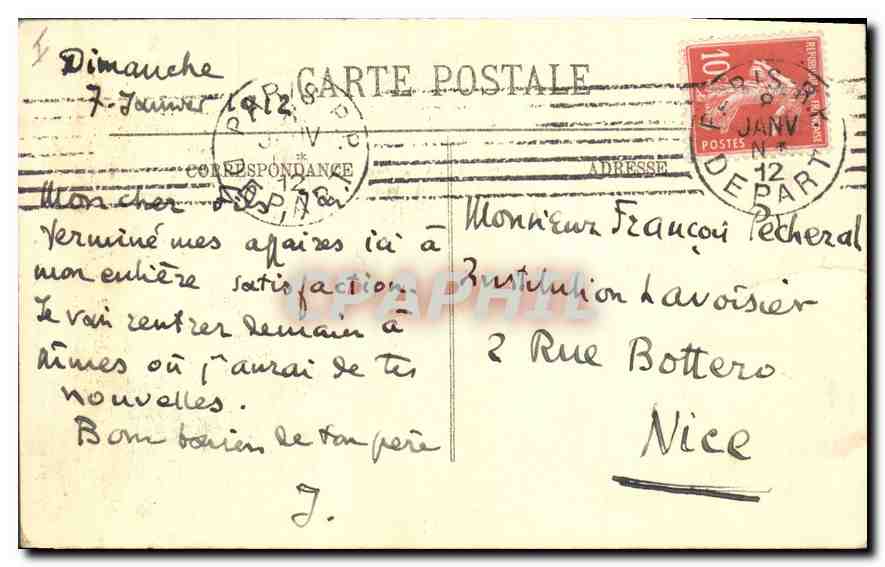 Dimanche
7 Janvier 1912
CARTE POSTALE
CORRESPONDANCE
ADRESSE
10
POSTES
REPUBLIQUE FRANCAISE
PARIS
JANV
12
DEPART
Mon cher
terminé mes affaires ici à
mon entière satisfaction.
Je vais rentrer demain à
Nîmes où j'aurai de tes
nouvelles.
Bons baisers de ton père
J.
Monsieur François Pecheral
Institution Lavoisier
2 Rue Bottero
Nice
CPAPHIL